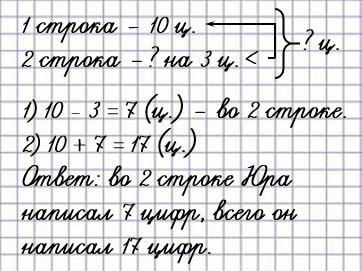 1 строка – 10 ц.
2 строка – ? на 3 ц. <
? ц.
1) 10 – 3 = 7 (ц.) – во 2 строке.
2) 10 + 7 = 17 (ц.)
Ответ: во 2 строке Юра
написал 7 цифр, всего он
написал 17 цифр.